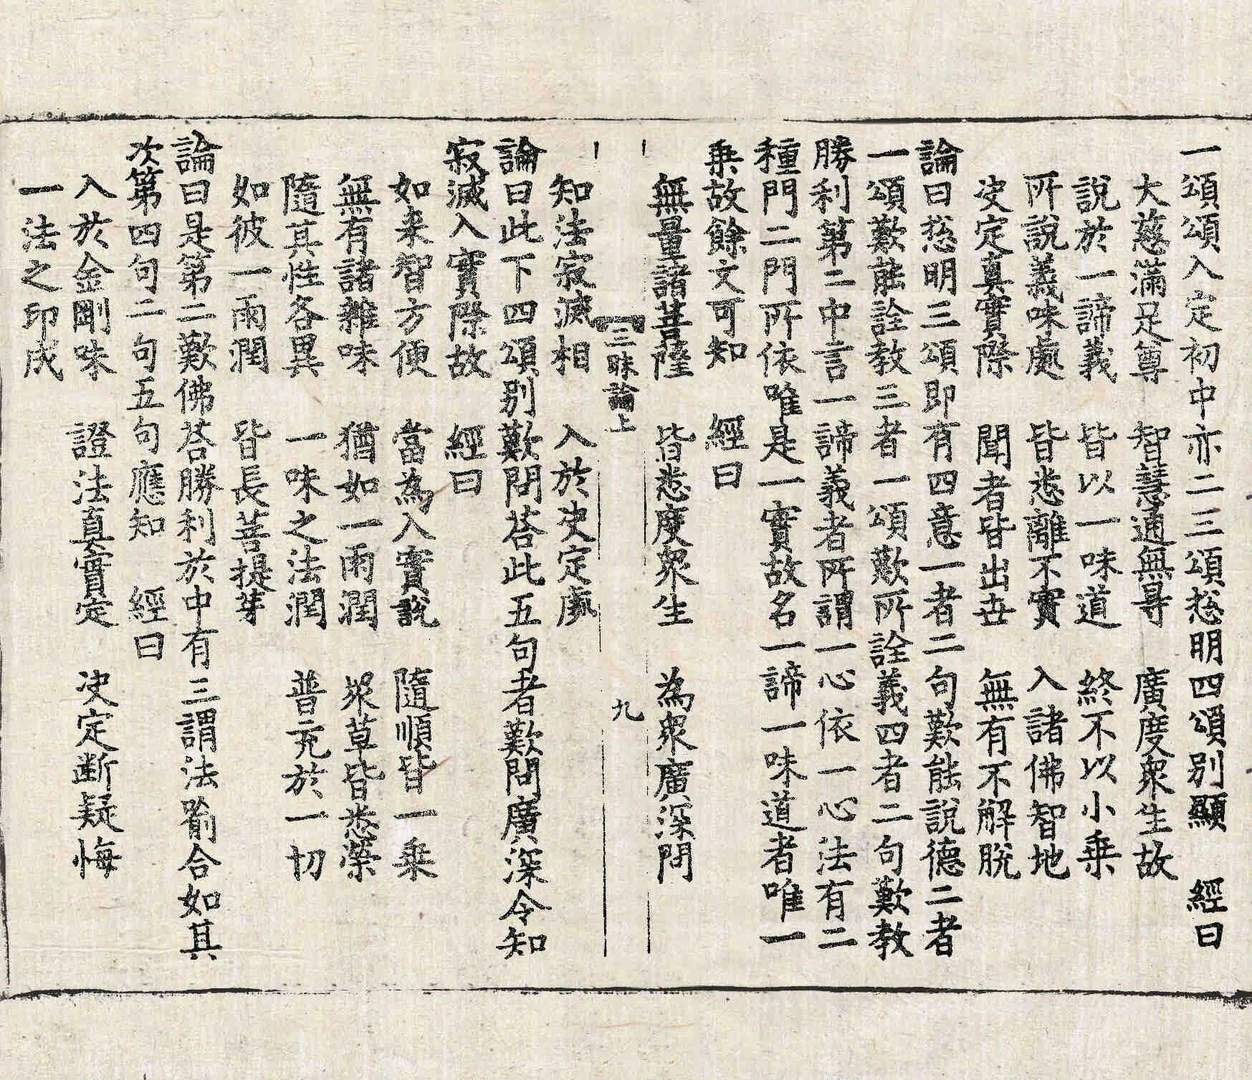 一頌頌入定初中亦二三頌揔明四頌別顯　經曰
大慈滿足尊　智慧通無㝵　廣度衆生故
說於一諦義　皆以一味道　終不以小乗
所說義味處　皆悉離不實　入諸佛智地
决定真實際　聞者皆出世　無有不解脫
論曰揔明三頌即有四意一者二句歎能說德二者
一頌歎能詮教三者一頌歎所詮義四者二句歎教
勝利第二中言一諦義者所謂一心依一心法有二
種門二門所依唯是一實故名一諦一味道者唯一
乗故餘文可知　經曰
無量諸菩薩　皆悉度衆生　為衆廣深問
三昧論上　九
知法寂滅相　入於决定處
論曰此下四頌別歎問荅此五句者歎問廣深令知
寂滅入實際故　經曰
如来智方便　當為入實說　隨順皆一乗
無有諸雜味　猶如一雨潤　衆草皆悉榮
隨其性各異　一味之法潤　普充於一切
如彼一雨潤　皆長菩提芽
論曰是第二歎佛荅勝利於中有三謂法喻合如其
次第四句二句五句應知　經曰
入於金剛味　證法真實定　决定断疑悔
一法之印成